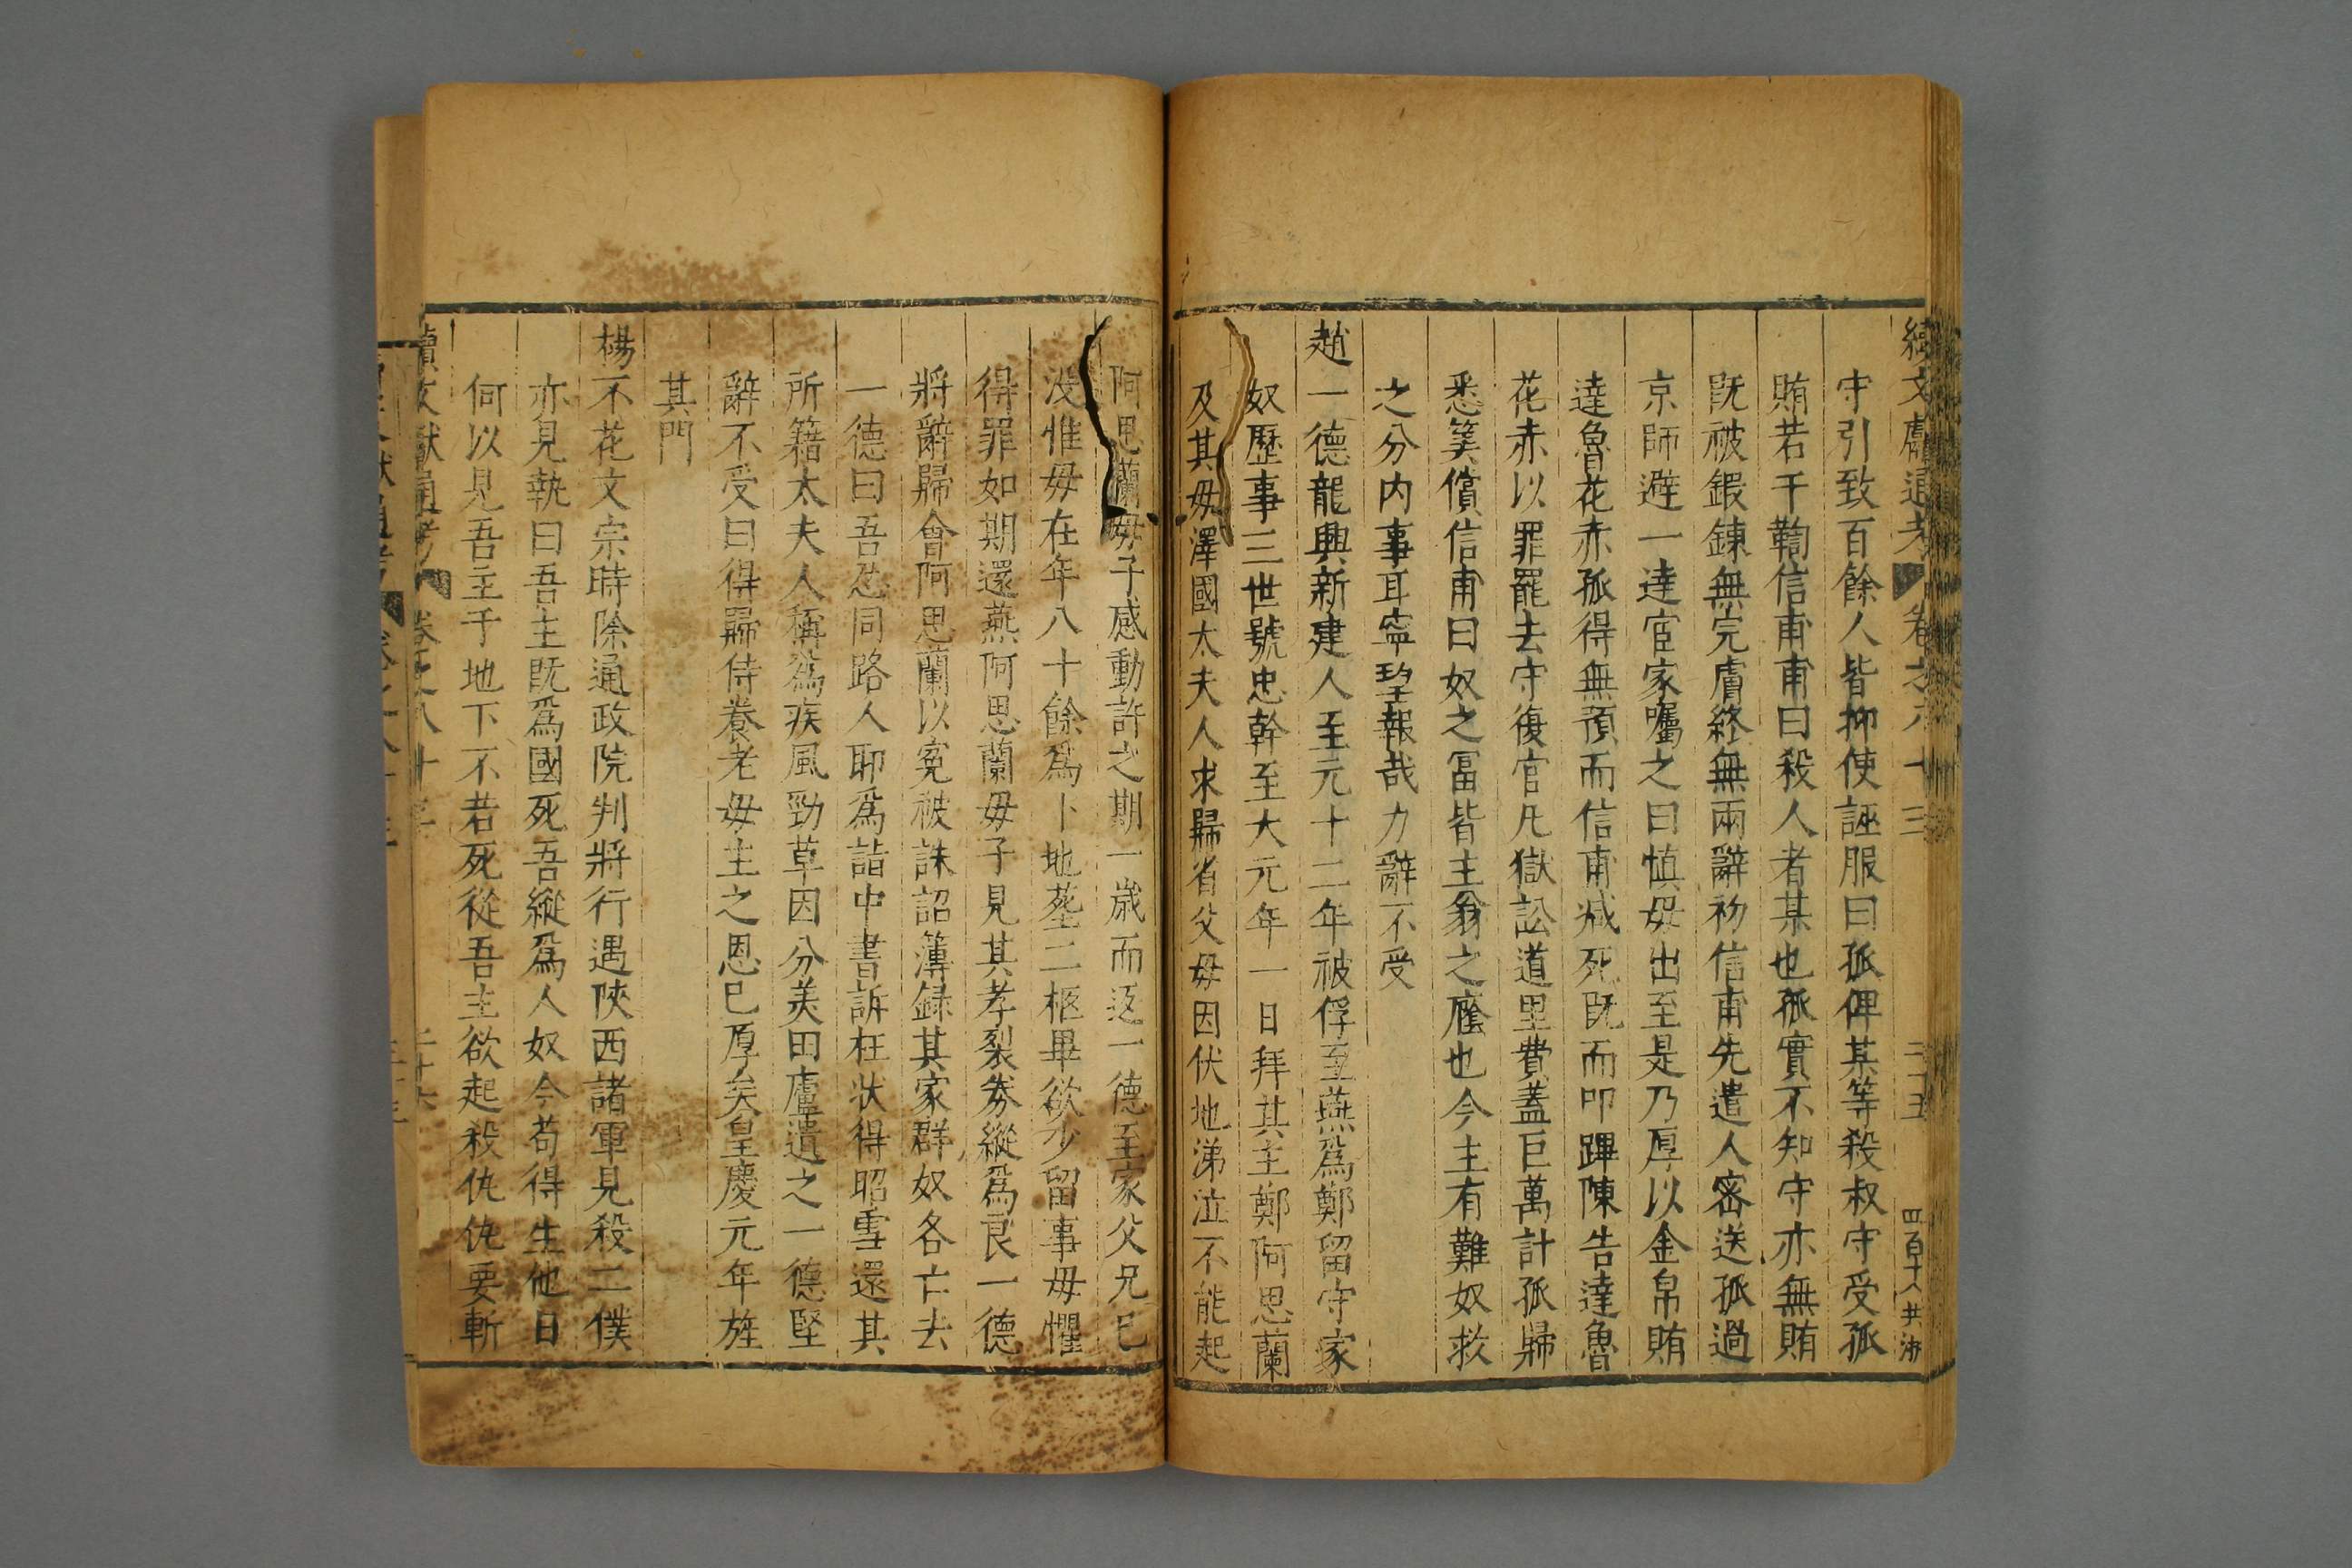 續文獻通考 卷之八十三 二十五 四百十八 共沛
守引致百餘人皆抑使誣服曰孤俾某等殺叔守受孤
賄若干鞫信甫甫曰殺人者某也孤實不知守亦無賄
既被鍜鍊無完膚終無兩辭初信甫先遣人密送孤過
京師避一達官家囑之曰慎毋出至是乃厚以金帛賄
達魯花赤孤得無預而信甫减死既而叩蹕陳告達魯
花赤以罪罷去守復官凡獄訟道里費蓋巨萬計孤歸
悉筭償信甫曰奴之冨皆主翁之廕也今主有難奴救
之分内事耳寧望報哉力辭不受
趙一德龍興新建人至元十二年被俘至燕爲鄭留守家
奴歷事三世號忠幹至大元年一日拜其主鄭阿思蘭
及其母澤國太夫人求歸省父母因伏地涕泣不能起
阿思蘭母子感動許之期一歳而返一德至家父兄已
沒惟母在年八十餘爲卜地葬二柩畢欲少留事母懼
得罪如期還燕阿思蘭母子見其孝裂劵縱爲良一德
將辭歸會阿思蘭以寃被誅詔簿録其家群奴各亡去
一德曰吾忍同路人耶爲詣中書訴枉状得昭雪還其
所籍太夫人稱爲疾風勁草因分美田廬遺之一德堅
辭不受曰得歸侍養老母主之恩已厚矣皇慶元年旌
其門
楊不花文宗時除通政院判將行遇陝西諸軍見殺二僕
亦見執曰吾主既爲國死吾縱爲人奴今苟得生他日
何以見吾主于地下不若死從吾主欲起殺仇仇要斬
續文獻通考 卷之八十三 二十六